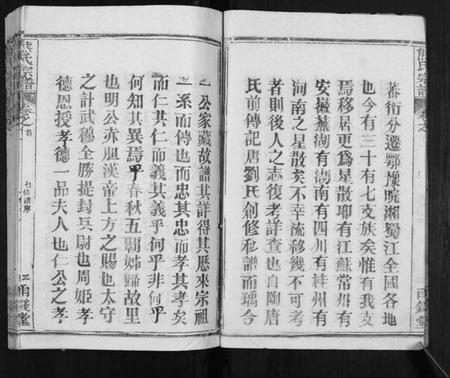 蕃衍分遷鄂豫皖湘蜀江全國各地
也今有三十有七支族矣惟有我支
焉移居更為星散耶有江蘇常州有
安徽蕪湖有湖南有四川有梓州有
洵南之星散矣不幸流移幾不可考
者則後人之志復考詳查也自陶唐
氏前傳記唐劉氏創修私譜而璃兮
熊氏宗譜
卷之
甫錢堂
一公家藏故譜其詳得其歷來宗祖
一系而傳也而其忠而孝其孝矣
而仁其仁而義其義乎何乎非何乎
何知其異焉乎春秋五覇姊歸故里
也明公赤胆漢帝上方之賜也太守
之計武穆全勝提封只尉也周姫孝
德恩授孝德一品夫人也仁公之孝
熊氏宗譜
卷之首
二
甫錢堂